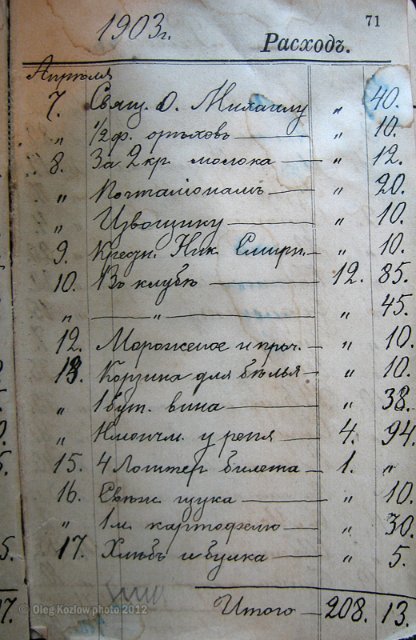 71
1903 г.
Расходъ.
Апрѣля
7. Свящ. О. Михаилу „ 40.
„ 1/2 ф. орѣховъ „ 10.
8. За 2 кр. молока „ 12.
„ Почталіонамъ „ 20.
„ Извощику „ 10.
9. Ник. Смирн. „ 10.
10. Въ клубѣ 12. 85.
„ „ „ 45.
12. Мороженое и проч. „ 10.
13. Корзина для бѣлья „ 10.
„ 1 бут. вина „ 38.
„ у 4. 94.
15. 4 Лоттер. билета 1. „
16. Свѣж. щука „ 10.
„ 1 м. картофелю „ 30.
17. Хлѣбъ и булка „ 5.
Итого 208. 13.
© Oleg Kozlow photo 2012